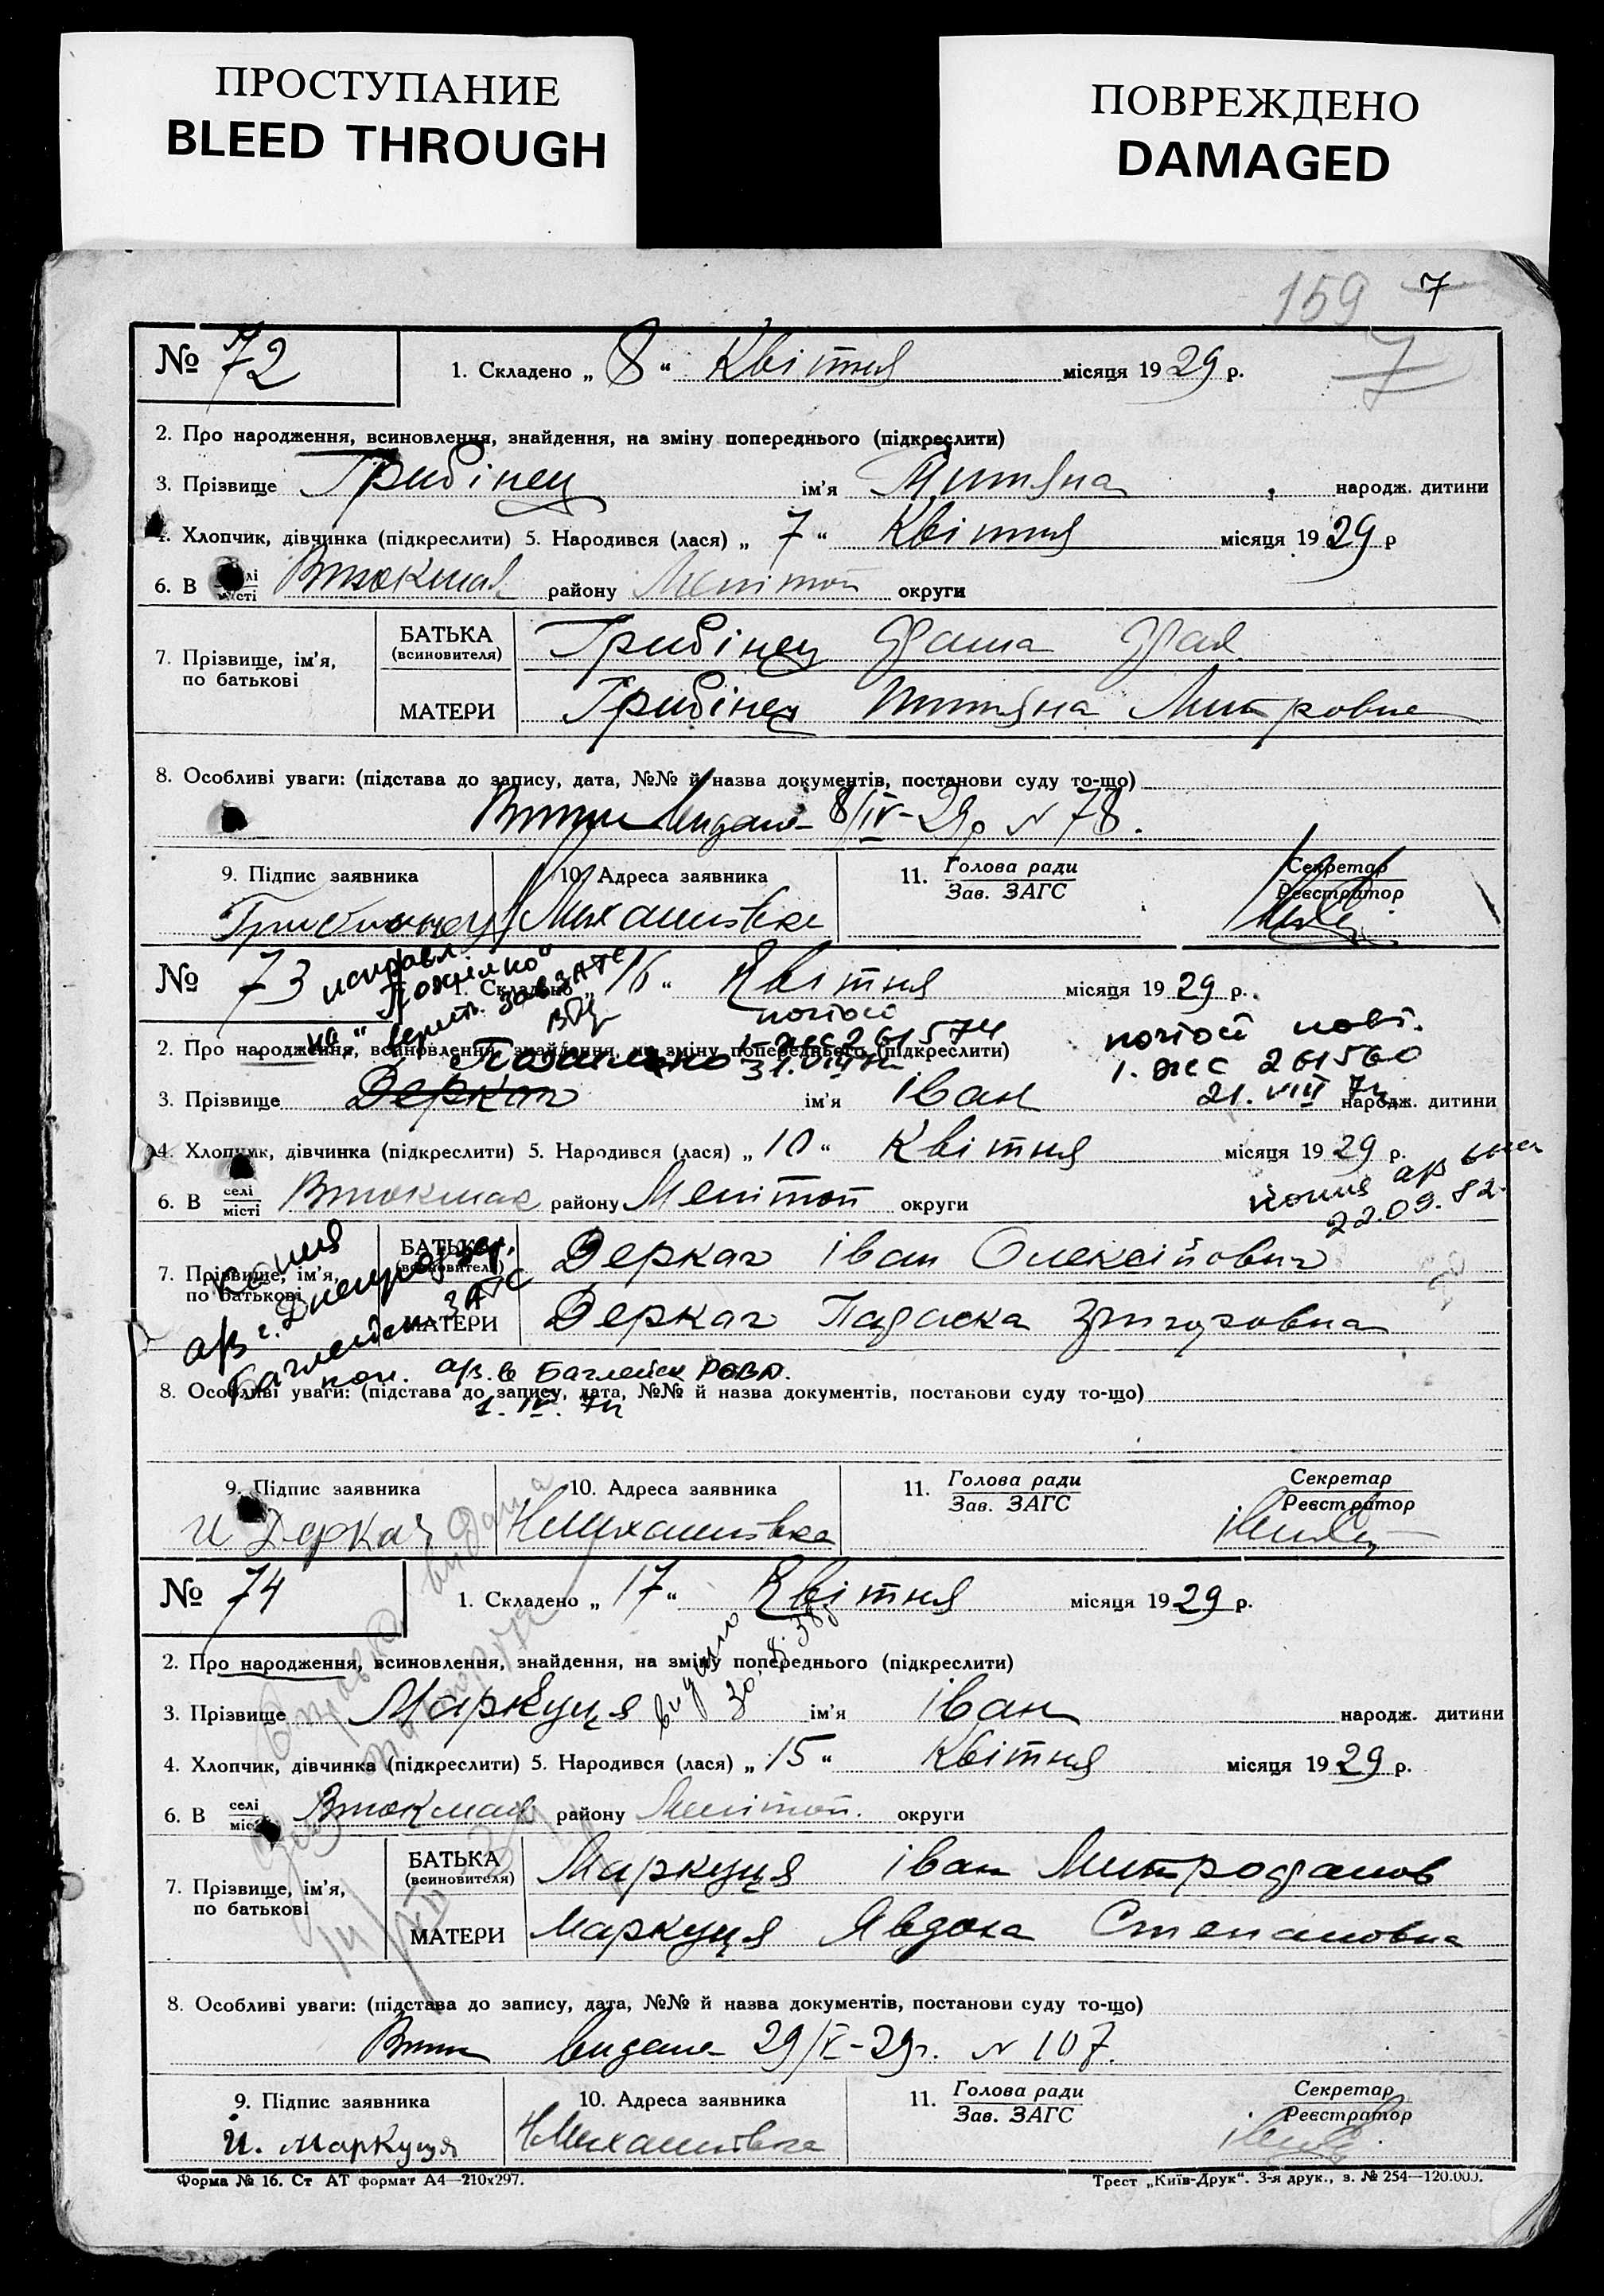 ПРОСТУПАНИЕ
BLEED THROUGH
ПОВРЕЖДЕНО
DAMAGED
159 7
7
№ 72 1. Складено „ 8 “ Квітня місяця 1929 р.
2. Про народження, всиновлення, знайдення, на зміну попереднього (підкреслити)
3. Прізвище Грибінец ім’я народж. дитини
4. Хлопчик, дівчинка (підкреслити) 5. Народився (лася) „ 7 “ Квітня місяця 1929 р
6. В селі місті Втокмак району Мелітоп округи
7. Прізвище, ім’я, по батькові
БАТЬКА (всиновителя) Грибінец
МАТЕРИ Грибінец Митровна
8. Особливі уваги: (підстава до запису, дата, №№ й назва документів, постанови суду то-що)
видано 8/IV-29р N 78.
9. Підпис заявника 10. Адреса заявника 11. Голова ради Зав. ЗАГС Секретар Реєстратор
Михайлівка
№ 73 1. Складено „ 16 “ Квітня місяця 1929 р.
исправл.
на „Пожилко“
зав ЗАГС
2. Про народження, всиновлення, знайдення, на зміну попереднього (підкреслити)
261574
31.VIII
261560
21.VIII 74
3. Прізвище Деркач ім’я Іван народж. дитини
4. Хлопчик, дівчинка (підкреслити) 5. Народився (лася) „ 10 “ Квітня місяця 1929 р.
6. В селі місті Втокмак району Мелітоп округи
копия
22.09.82
7. Прізвище, ім’я, по батькові
БАТЬКА (всиновителя) Деркач Іван Олексійович
МАТЕРИ Деркач Параска Григоровна
Копия
а/з г. Днепродзер.
Баглейск ЗАГС
коп. а/з. в Баглейск РОВД.
1. IV. 74
8. Особливі уваги: (підстава до запису, дата, №№ й назва документів, постанови суду то-що)
9. Підпис заявника 10. Адреса заявника 11. Голова ради Зав. ЗАГС Секретар Реєстратор
И Деркач НМихайлівка
№ 74 1. Складено „ 17 “ Квітня місяця 1929 р.
2. Про народження, всиновлення, знайдення, на зміну попереднього (підкреслити)
видано
3. Прізвище Маркуця ім’я Іван народж. дитини
4. Хлопчик, дівчинка (підкреслити) 5. Народився (лася) „ 15 “ Квітня місяця 1929 р.
6. В селі місті Втокмак району Мелітоп. округи
7. Прізвище, ім’я, по батькові
БАТЬКА (всиновителя) Маркуця Іван Митрофанов
МАТЕРИ Маркуця Явдоха Степановна
8. Особливі уваги: (підстава до запису, дата, №№ й назва документів, постанови суду то-що)
видано 29/V-29р. N 107.
9. Підпис заявника 10. Адреса заявника 11. Голова ради Зав. ЗАГС Секретар Реєстратор
И. Маркуця НМихайлівка
Форма № 16. Ст АТ формат А4—210х297.
Трест „Київ-Друк“. 3-я друк., з. № 254—120.000.